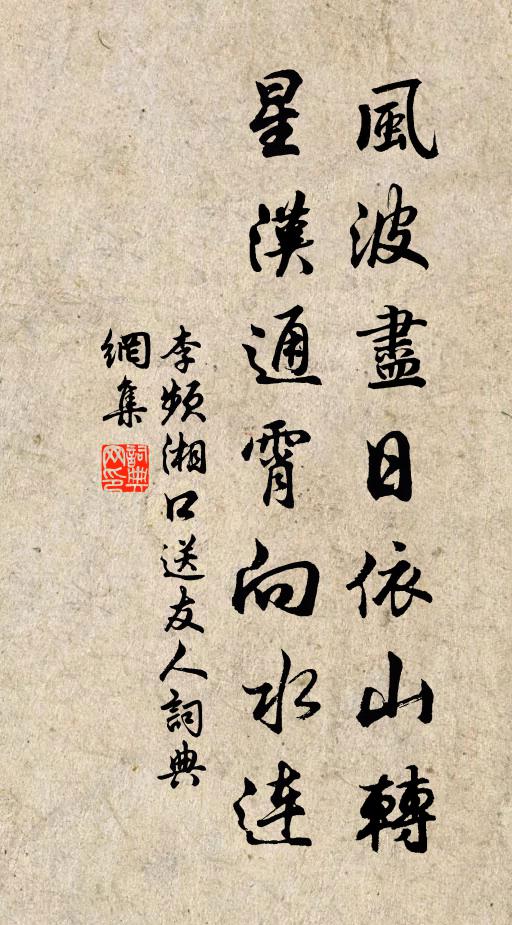 風波盡日依山轉
星漢通霄向水連
李頻湘口送友人詞典
網集
詞典
網印